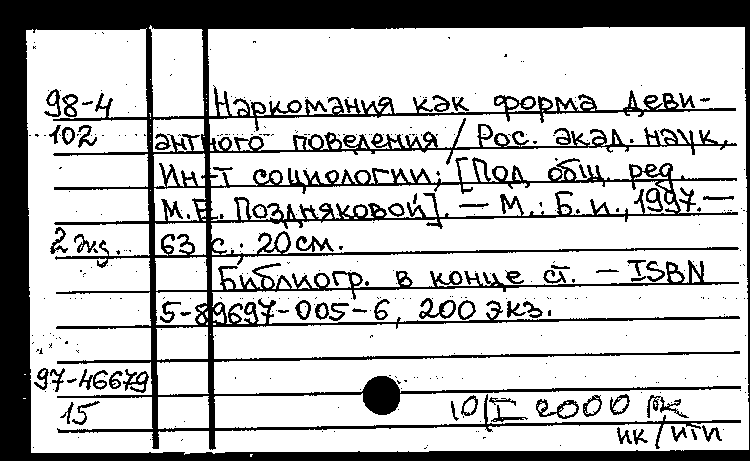 98-4 Наркомания как форма деви-
102 антного поведения / Рос. акад. наук,
Ин-т социологии; [Под общ. ред.
М.Е. Поздняковой]. — М.: Б. и., 1997. —
2 экз. 63 с.; 20 см.
Библиогр. в конце ст. — ISBN
5-89697-005-6, 200 экз.
97-46679
15 10/I 2000
ик/ити